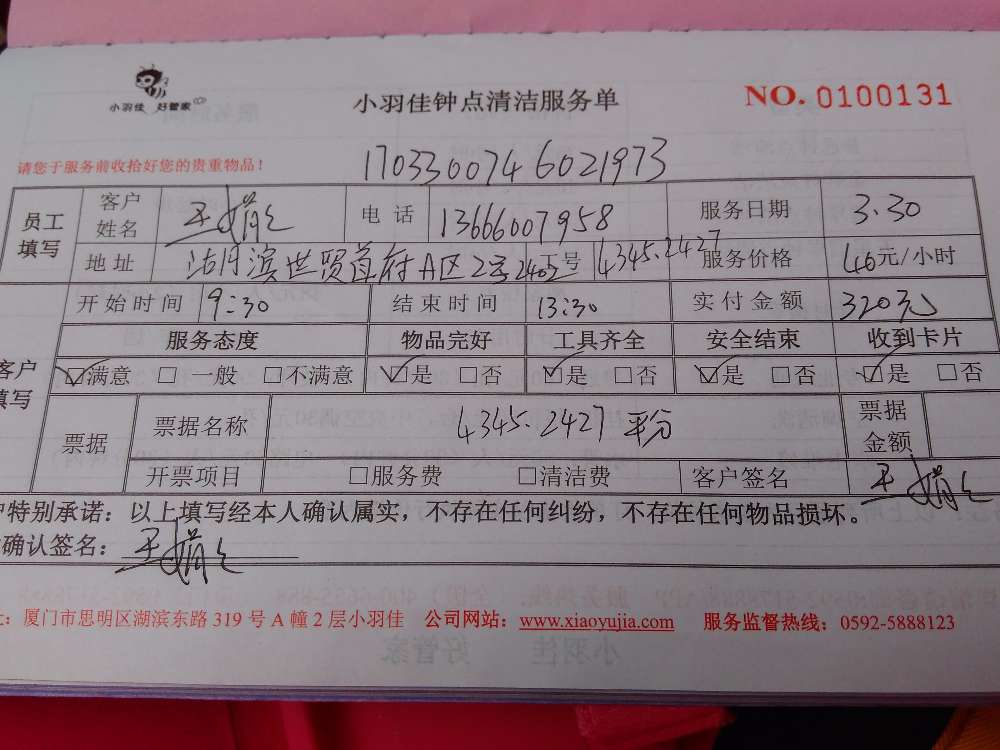 小羽佳 好管家
小羽佳钟点清洁服务单
NO. 0100131
请您于服务前收拾好您的贵重物品！
1703300746021973
员工填写 客户姓名 王 电话 13666007958 服务日期 3.30
地址 湖滨世贸首府A区2号2402 工号 4345.2427 服务价格 40元/小时
开始时间 9:30 结束时间 13:30 实付金额 320元
服务态度 物品完好 工具齐全 安全结束 收到卡片
客户填写 ☑满意 □一般 □不满意 ☑是 □否 ☑是 □否 ☑是 □否 ☑是 □否
票据 票据名称 4345.2427平分 票据金额
开票项目 □服务费 □清洁费 客户签名 王
户特别承诺：以上填写经本人确认属实，不存在任何纠纷，不存在任何物品损坏。
确认签名：王
：厦门市思明区湖滨东路 319 号 A 幢 2 层小羽佳 公司网站：www.xiaoyujia.com 服务监督热线：0592-5888123
小羽佳 好管家